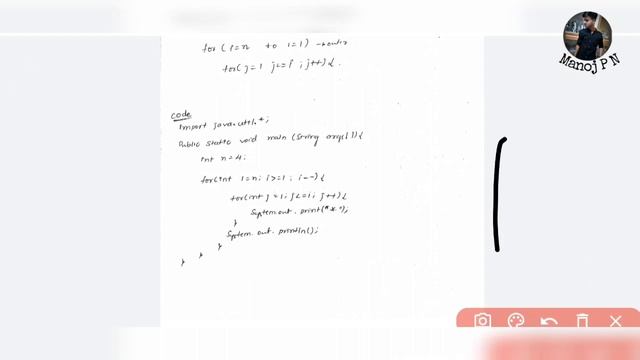 for (i=n to i=1) → outer
for(j=1 j<=i ; j++){.
code
import java.util.*;
public static void main (String args[]){
int n=4;
for(int i=n; i>=1; i--){
for(int j=1; j<=i; j++){
System.out.print("*");
}
System.out.println();
}
} }
Manoj P N